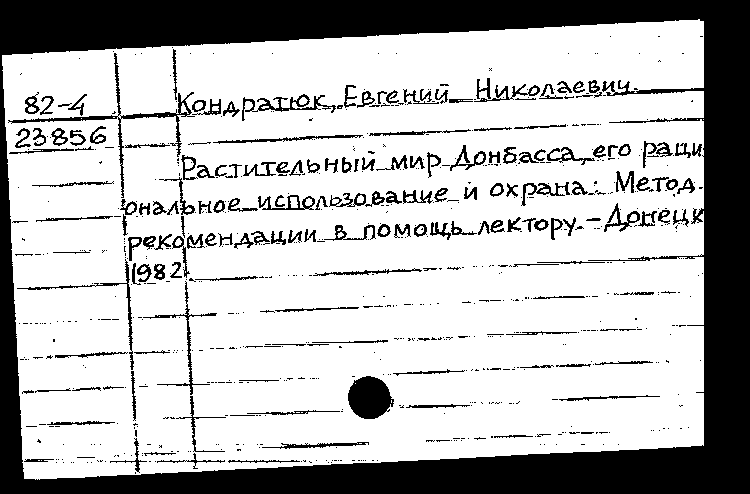 82-4 Кондратюк, Евгений Николаевич.
23856
Растительный мир Донбасса, его раци
ональное использование и охрана: Метод.
рекомендации в помощь лектору. - Донецк
1982.